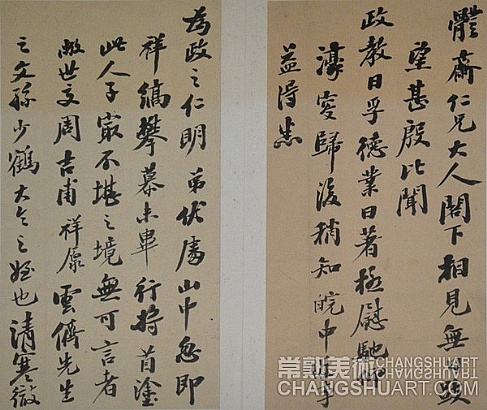 體齋仁兄大人閣下相見無
望甚殷比聞
政教日孚德業日著極慰馳
濠安歸後稍知皖中
益得悉
為政之仁明弟伏處山中忽即
祥縞攀慕未畢行將首塗
此人子最不堪之境無可言者
敝世交周吉甫祥原雲儕先生
之文孫少鶴大令之姪也清寒微
常熟美術 CHANGSHUART.COM
CHANGSHUART.COM